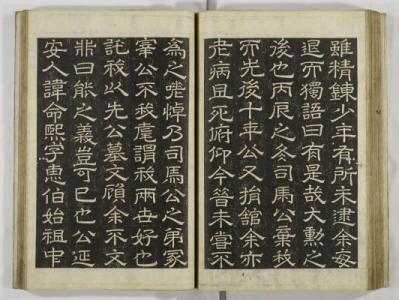 雖精鍊少年有所未逮余每
退而獨語曰有是哉大勳之
後也丙辰之冬司馬公棄我
而先後十年公又捐館余亦
老病且死俯仰今昔未嘗不
為之嗟悼乃司馬公之弟冢
宰公不我謂我兩世好也
託我以先公墓文顧余不文
非曰能之義豈可已也公延
安人諱命熙字惠伯始祖中